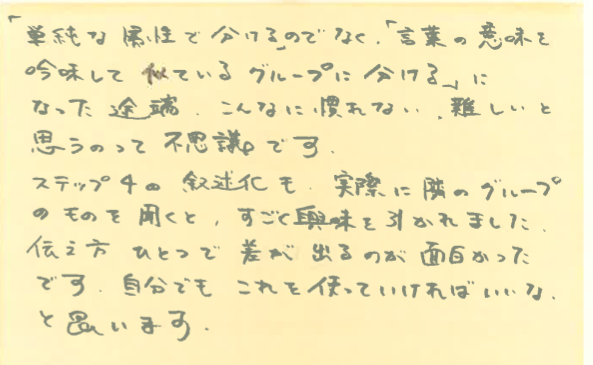 「単純な属性で分ける」のでなく、「言葉の意味を
吟味して似ているグループに分ける」に
なった途端、こんなに慣れない、難しいと
思うのって不思議。です。
ステップ4の叙述化も、実際に隣のグループ
のものを聞くと、すごく興味を引かれました。
伝え方ひとつで差が出るのが面白かった
です。自分でもこれを使っていければいいな、
と思います。